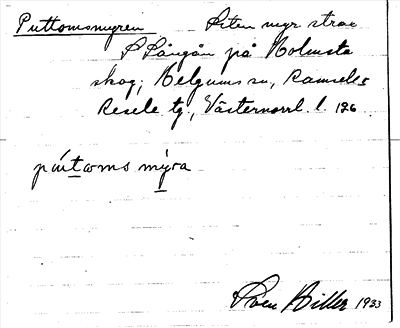 Puttomsmyren Liten myr strax
S Sångån på Holmsta
skog, Helgums sn, Ramsele o
Resele tg, Västernorrl. l. 126
pu̇tωms my̆ra
Sven Hiller 1933